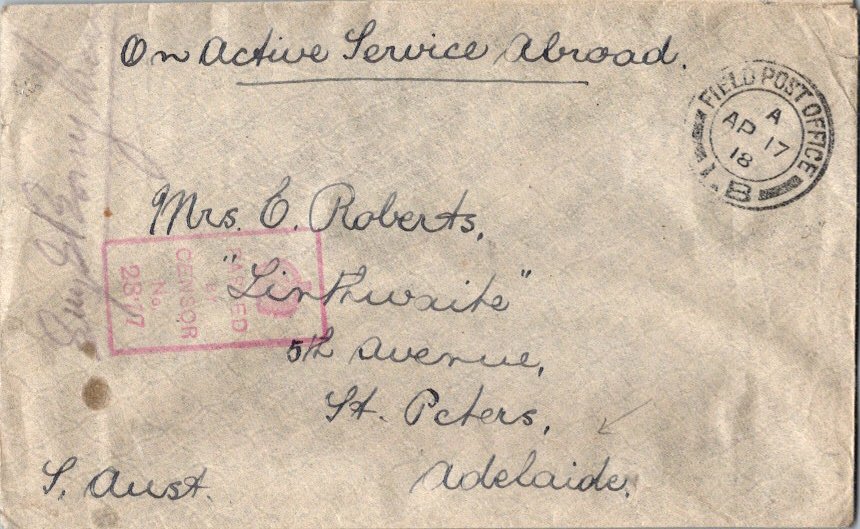 On Active Service Abroad.
FIELD POST OFFICE
A
AP 17
18
1.B
Mrs. E. Roberts,
"Linthwaite"
5th Avenue,
St. Peters,
Adelaide,
S. Aust.
PASSED
BY
CENSOR
No.